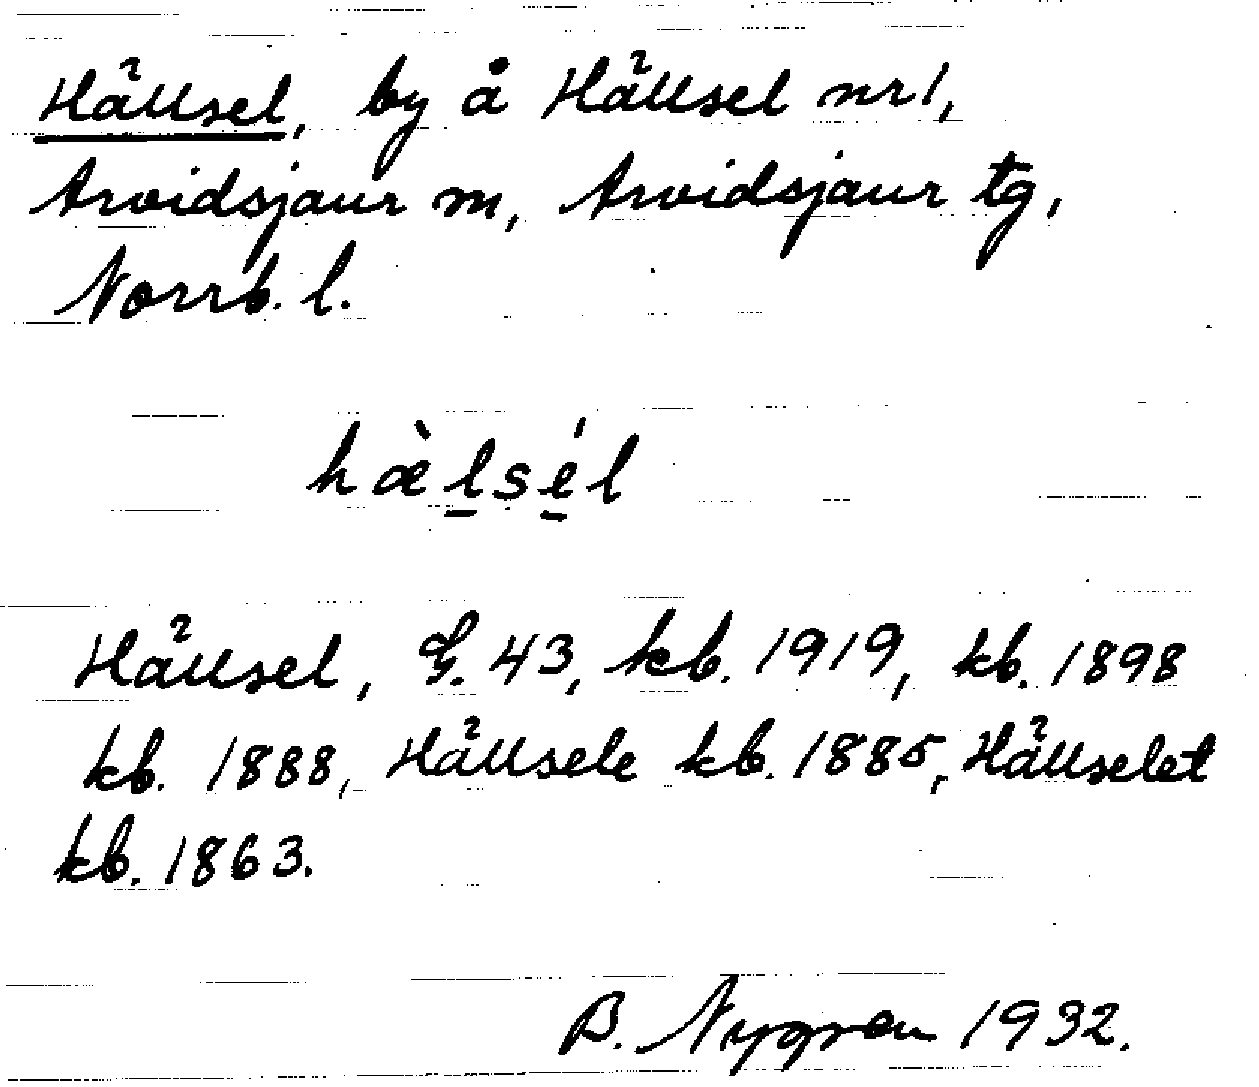 Hällsel, by å Hällsel nr 1,
Arvidsjaur m, Arvidsjaur tg,
Norrb. l.
hæ̀lsél
Hällsel, G. 43, kb. 1919, kb. 1898
kb. 1888, Hällsele kb. 1885, Hällselet
kb. 1863.
B. Nygren 1932.